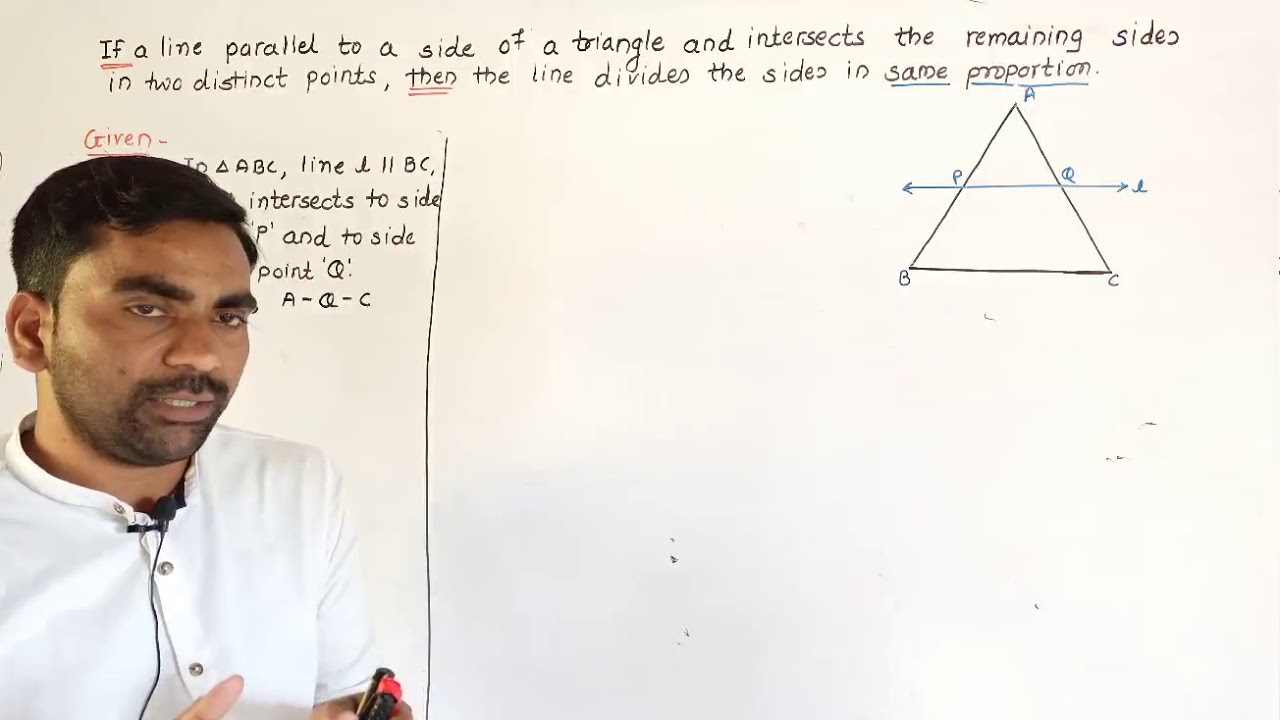 If a line parallel to a side of a triangle and intersects the remaining sides
in two distinct points, then the line divides the sides in same proportion.
Given -
In △ ABC, line l || BC,
intersects to side
'P' and to side
point 'Q'.
A - Q - C
A
P
Q
l
B
C